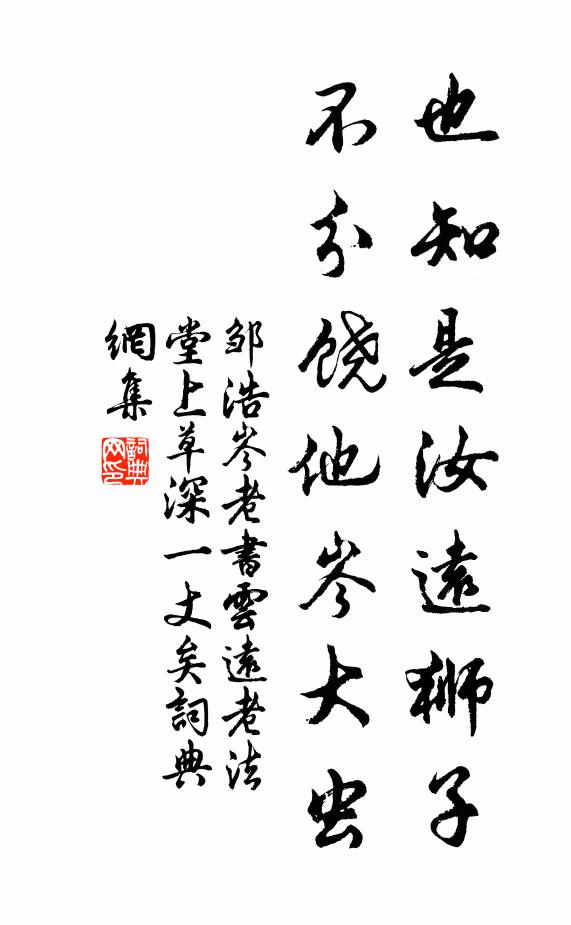 也知是汝遠獅子
不分饶他岑大虫
邹浩岑老書雲遠老法
堂上草深一丈矣詞典
網集
詞典网印